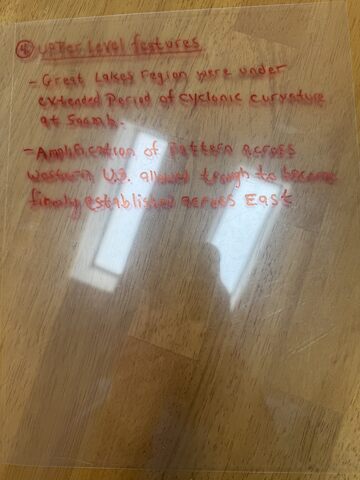 ④ Upper level features
- Great Lakes region were under
extended period of cyclonic curvature
at 500mb.
- Amplification of pattern across
western U.S. allowed trough to become
firmly established across East